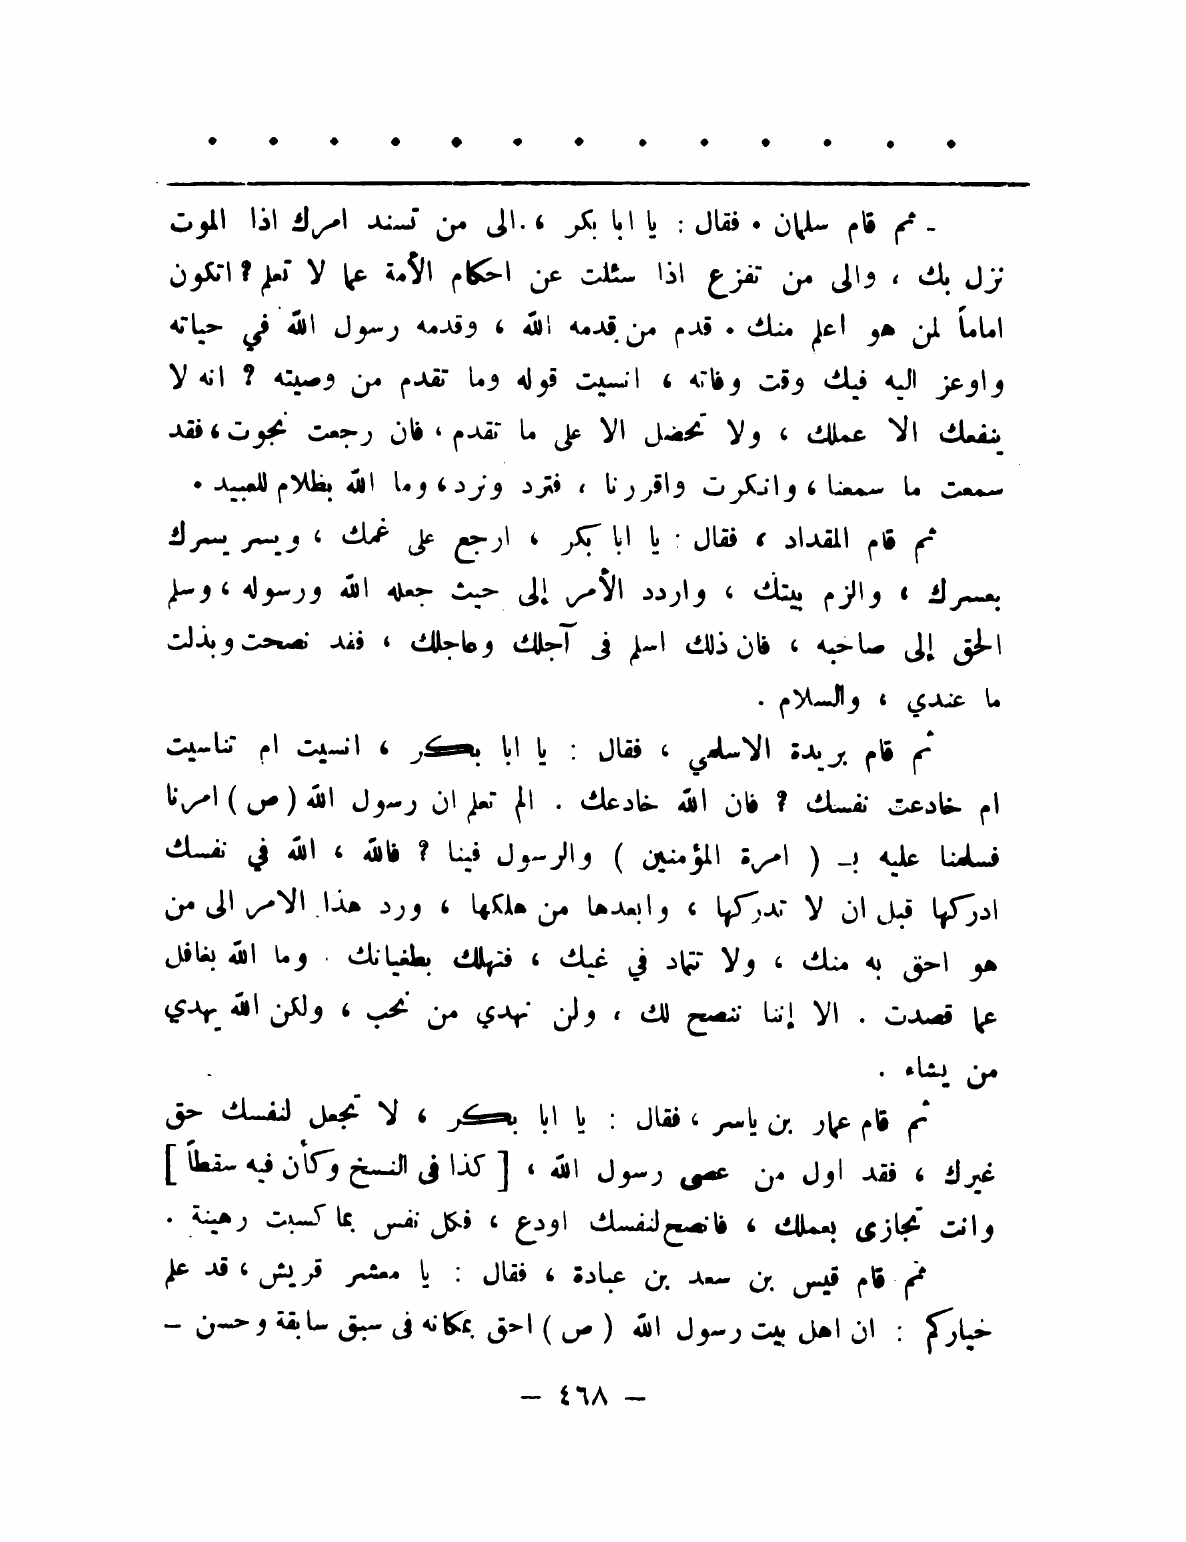 . . . . . . . . . . . . .
ـ ثم قام سلمان . فقال : يا ابا بكر ، الى من تسند امرك اذا الموت
نزل بك ، والى من تفزع اذا سئلت عن احكام الأمة عما لا تعلم ? اتكون
اماماً لمن هو اعلم منك . قدم من قدمه الله ، وقدمه رسول الله في حياته
واوعز اليه فيك وقت وفاته ، انسيت قوله وما تقدم من وصيته ? انه لا
ينفعك الا عملك ، ولا تحضل الا على ما تقدم ، فان رجعت نجوت ، فقد
سمعت ما سمعنا ، وانكرت واقررنا ، فترد ونرد ، وما الله بظلام للعبيد .
ثم قام المقداد ، فقال : يا ابا بكر ، ارجع على غمك ، ويسر يسرك
بعسرك ، والزم بيتك ، واردد الأمر إلى حيث جعله الله ورسوله ، وسلم
الحق إلى صاحبه ، فان ذلك اسلم في آجلك وعاجلك ، فقد نصحت وبذلت
ما عندي ، والسلام .
ثم قام بريدة الاسلمي ، فقال : يا ابا بكر ، انسيت ام تناسيت
ام خادعت نفسك ? فان الله خادعك . الم تعلم ان رسول الله ( ص ) امرنا
فسلمنا عليه بـ ( امرة المؤمنين ) والرسول فينا ? فالله ، الله في نفسك
ادركها قبل ان لا تدركها ، وابعدها من هلكها ، ورد هذا الامر الى من
هو احق به منك ، ولا تتماد في غيك ، فتهلك بطغيانك . وما الله بغافل
عما قصدت . الا إننا ننصح لك ، ولن نهدي من نحب ، ولكن الله يهدي
من يشاء .
ثم قام عمار بن ياسر ، فقال : يا ابا بكر ، لا تجعل لنفسك حق
غيرك ، فقد اول من عصى رسول الله ، [ كذا في النسخ وكأن فيه سقطاً ]
وانت تجازى بعملك ، فانصح لنفسك اودع ، فكل نفس بما كسبت رهينة .
ثم قام قيس بن سعد بن عبادة ، فقال : يا معشر قريش ، قد علم
خياركم : ان اهل بيت رسول الله ( ص ) احق بمكانه في سبق سابقة وحسن ـ
— ٤٦٨ —